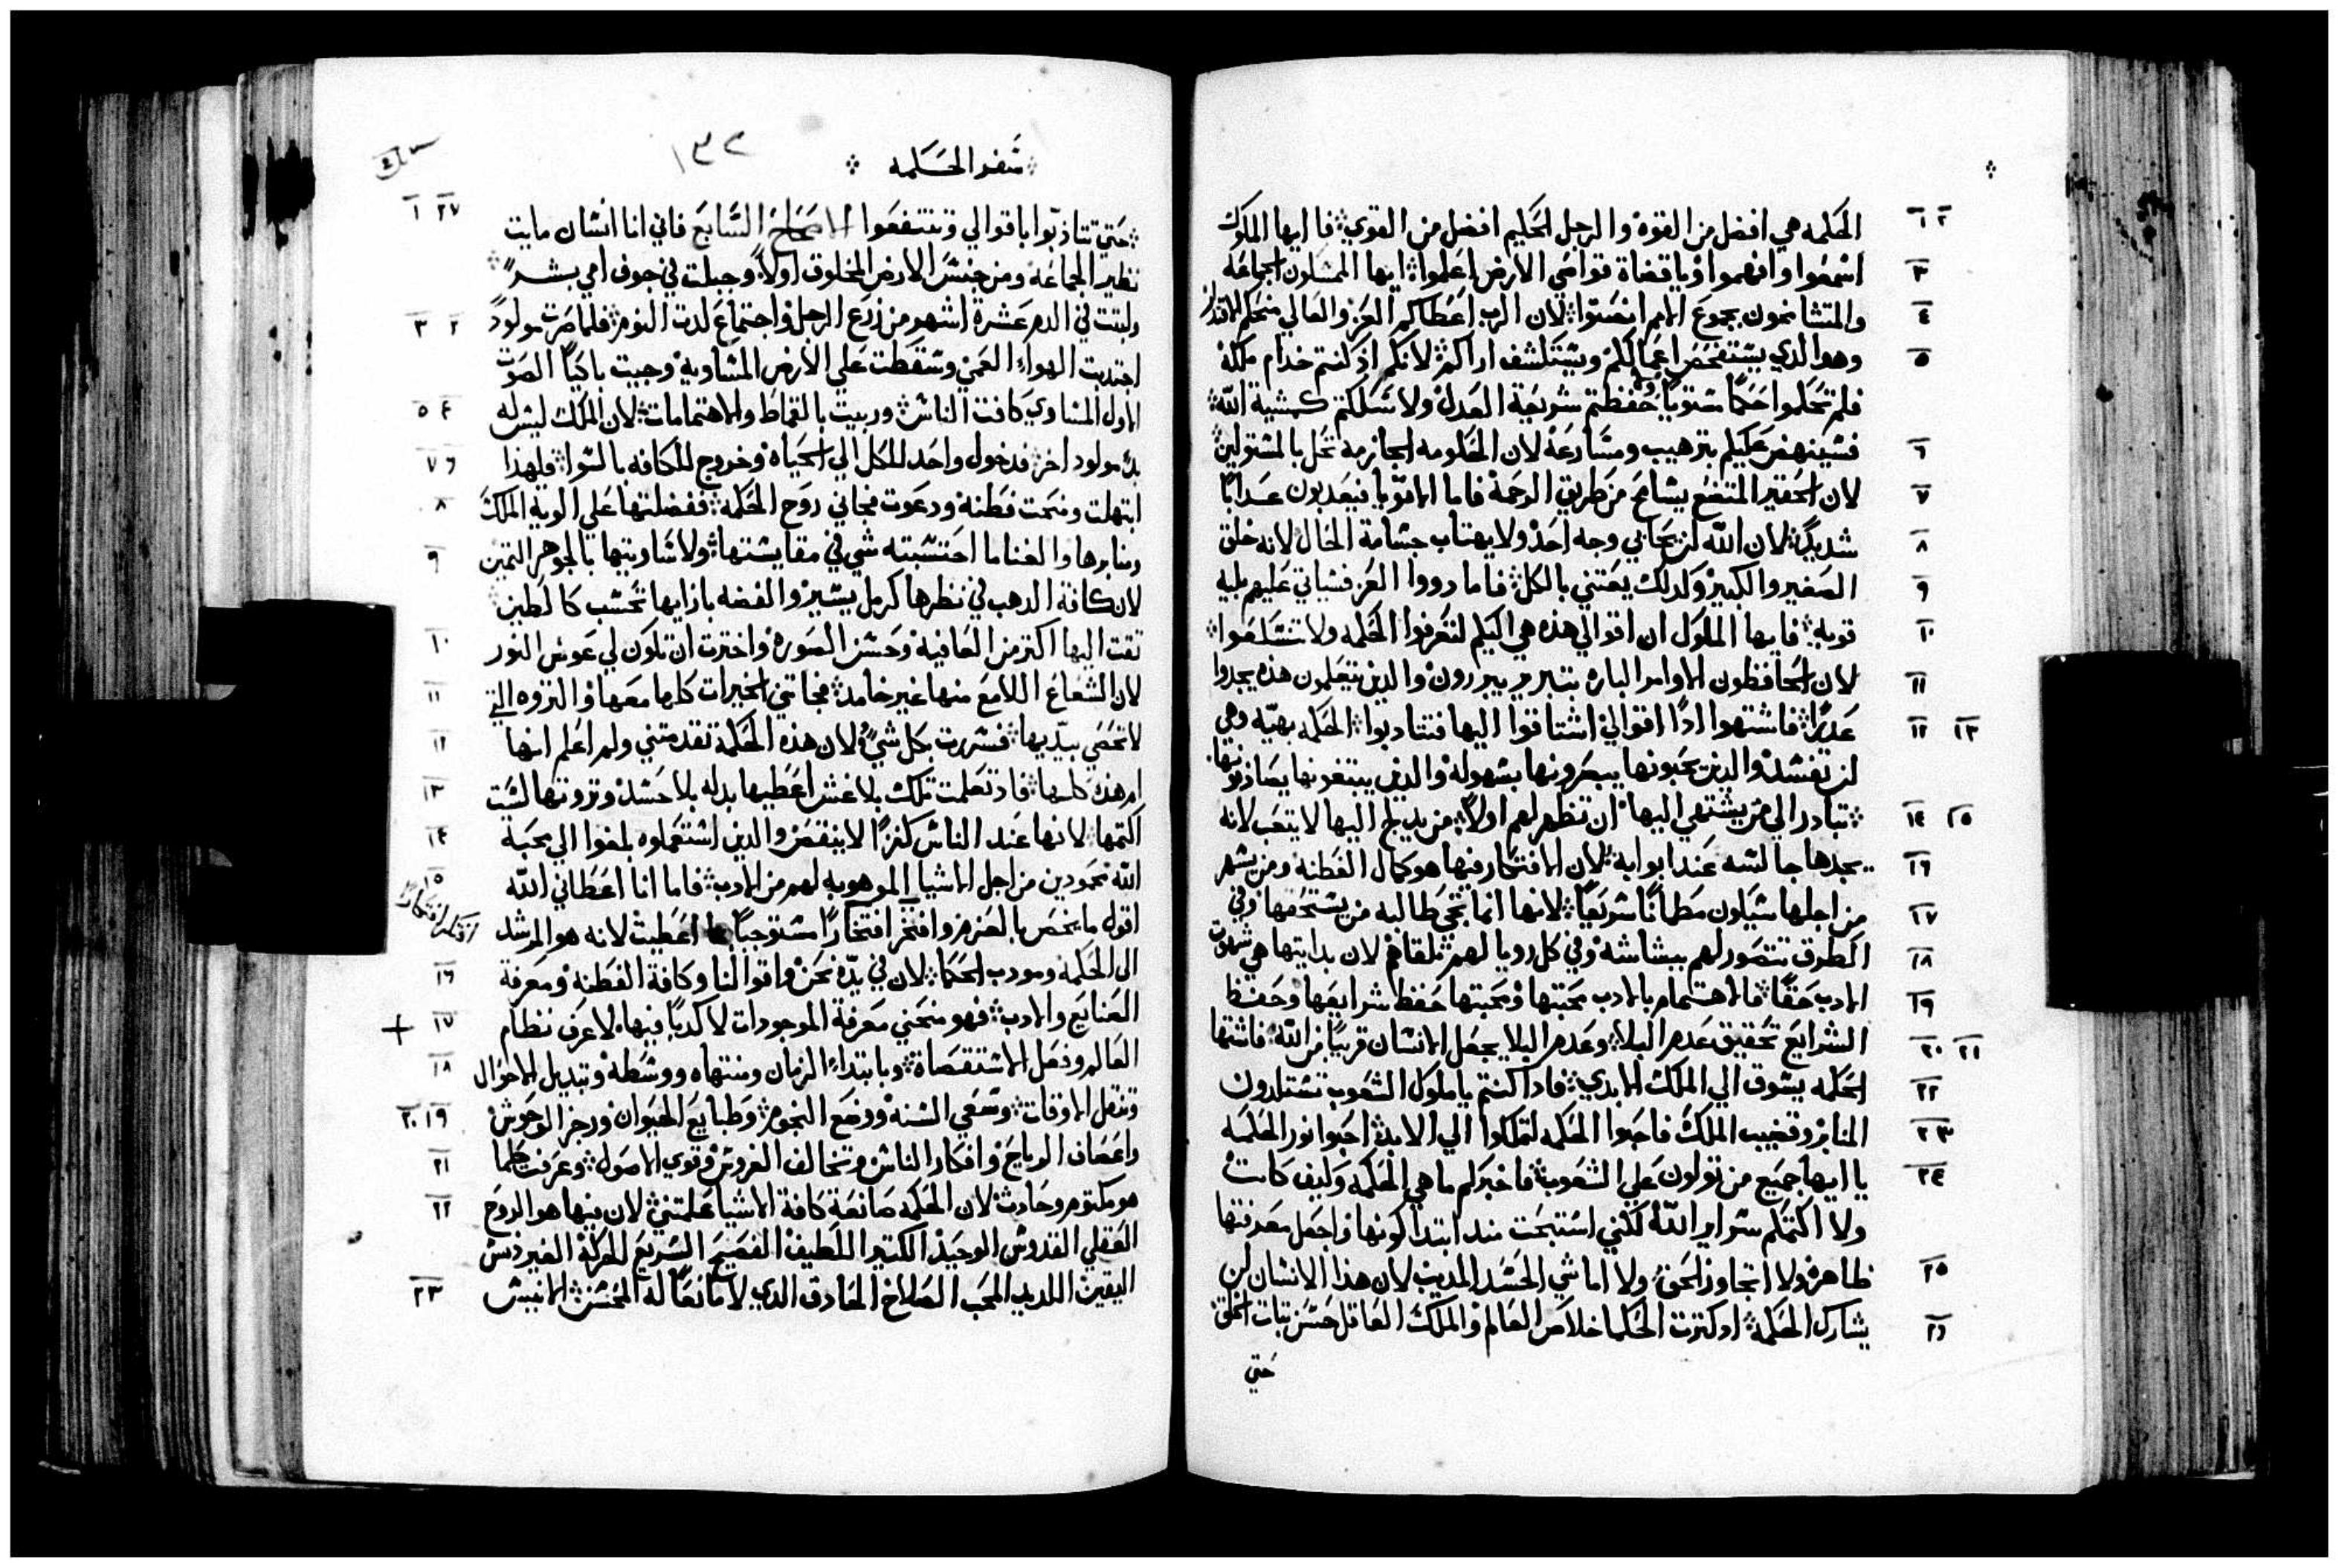 ١ ٢ الحكمه هي افضل من القوه والرجل الحكيم افضل من القوي فا ايها الملوك
٣ اسمعوا وافهموا وياقضاة قواصي الارض اعلموا ايها المتسلون الجماعه
٤ والمتشامخون بجموع الامم انصتوا لان الرب اعطاكم العز والعالي منحكم الاقتدار
٥ وهو الدي يستفحص اعمالكم ويستكشف اراكم لانكم اذ كنتم خدام ملكه
فلم تحكموا حكما ستويا ولا حفظتم شريعة العدل ولا سلكتم كمشية الله
٦ فسينهض عليكم بترهيب ومسارعه لان الحكومه الجازمه تحل بالمستولين
٧ لان الحقير المتضع يسامح من طريق الرحمة فاما الاقويا فيعدبون عدابا
٨ شديدا لان الله لن يحابي وجه احد ولا يهتاب جسامة الحال لانه خلق
٩ الصغير والكبير ولدلك يعتني بالكل فاما دووا العز فسياتي عليهم بليه
١٠ قويه فايها الملوك ان اقوالي هذه هي اليكم لتعرفوا الحكمه ولا تتسلعوا
١١ لان الحافظون الاوامر الباره بتبرير يبررون والدين يتعلمون هذه يجدوا
١٢ ١٣ عديرا فاشتهوا ادا اقوالي اشتاقوا اليها فتتادبوا الحكمه بهيه وهي
لن تفسد والدين يحبونها يبصرونها بسهوله والدين يبتغونها يصادفونها
١٤ ١٥ تبادر الي من يشتهي اليها ان تظهر لهم اولا من يدلج اليها لا يتعب لانه
١٦ يجدها جالسه عند ابوابه لان الافتكار فيها هو كمال الفطنه ومن يسهر
١٧ من اجلها سيكون مطمانا سريعا لانها انما تجي طالبه من يستحقها وفي
١٨ الطرق تتصور لهم ببشاشه وفي كل رويا لهم تلقاهم لان بدايتها هي شهوة
١٩ الادب حقا فالاهتمام بالادب محبتها ومحبتها حفظ شرايعها وحفظ
٢٠ ٢١ الشرايع تحقيق عدم البلا وعدم البلا يجعل الانسان قريبا من الله فاشتها
٢٢ الحكمه يسوق الي الملك الابدي فادا كنتم ياملوك الشعوب تستلدون
٢٣ المنابر وقضيب الملك فاحبوا الحكمه لتملكوا الي الابد احبوا نور الحكمه
٢٤ يا ايها جميع من تولون علي الشعوب فاخبركم ما هي الحكمه وكيف كانت
ولا اكتمكم سراير الله لكنني استبحت مند ابتدا كونها واجعل معرفتها
٢٥ ظاهره ولا اتجاوز الحق ولا اماشي الحسد المديب لان هذا الانسان لن
٢٦ يشارك الحكمه اد كترت الحكما خلاص العالم والملك العاقل حسن تبات الخلق
حتي
سفر الحكمه
١٣٢
٢٧ ١ حتي تتادبوا باقوالي وتنتفعوا الاصحاح السابع فاني انا انسان مايت
نظير الجماعه ومن جنس الارض المخلوق اولا وجبلت في جوف امي بشرا
٢ ٣ ولبتت في الدم عشرة اشهر من زرع الرجل واجتماع لدت النوم فلما صرت مولودا
اجتدبت الهواء العمي وسقطت علي الارض المساويه وجيبت باكيا الصوت
٤ ٥ الاول المساوي كافت الناس وربيت بالقماط والاهتمامات لان الملك ليس له
٦ ٧ بدء مولود اخر فدخول واحد للكل الي الحياه وخروج للكافه بالسوا فلهذا
٨ ابتهلت ومنحت فطنه ودعوت فجاني روح الحكمه ففضلتها علي الوية الملك
٩ ومنابرها والغنا ما احتسبته شي في مقايستها ولا ساويتها بالجوهر التمين
لان كافة الدهب في نظرها كرمل يسير والفضه بازايها تحسب كالطين
١٠ تقت اليها اكتر من العافيه وحسن الصوره واخترت ان تكون لي عوض النور
١١ لان الشعاع اللامع منها غير خامد فجاتني الخيرات كلها معها والتروه التي
١٢ لا تحصي بيديها فسررت بكل شي لان هذه الحكمة تقدمتني ولم اعلم انها
١٣ ام هذه كلها فاد تعلمت تلك بلا غش اعطيها بدله بلا حسد وتروتها لست
١٤ اكتمها لانها عند الناس كنزا لا ينقص والدين استعملوه بلغوا الي محبة
١٥ الله محمودين من اجل الاشيا الموهوبه لهم من الادب فاما انا اعطاني الله
اقول ما يخص بالعزم وافتخر افتخارا مستوجبا اعطيت لانه هو المرشد
افتكر افتكارا
١٦ الى الحكمه ومودب الحكما لان في يده نحن واقوالنا وكافة الفطنه ومعرفة
١٧ الصنايع والادب فهو منحني معرفة الموجودات لا كدبا فيها لاعرف نظام
١٨ العالم وفعل الاستقصاة وبابتداء الزمان ومنتهاه ووسطه وتبديل الاحوال
١٩ ٢٠ وتنقل الاوقات وسعي السنه ووضع النجوم وطبايع الحيوان ورجز الوحوش
٢١ واعصاف الرياح وافكار الناس وتخالف الغروس وقوي الاصول وعرفت كلما
٢٢ هو مكتوم وحادث لان الحكمه صانعة كافة الاشيا علمتني لان فيها هو الروح
العقلي القدوس الوحيد الكتير اللطيف الفصيح السريع الحركة الغير دنس
٢٣ اليقين اللديد المحب الصلاح الحادق الدي لا مانعا له المحسن الانيس